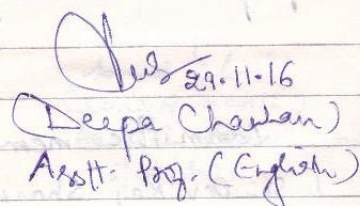 29.11.16
(Deepa Chauhan)
Asstt. Prof. (English)